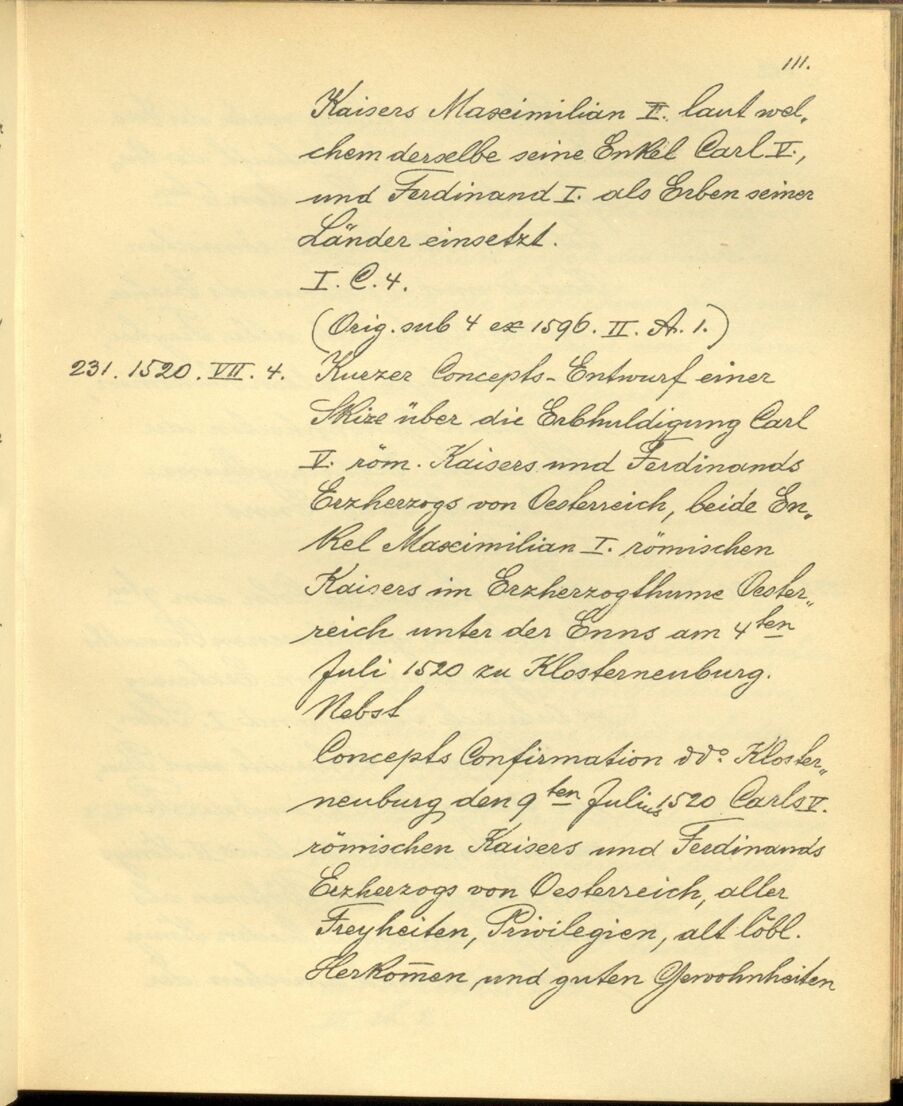 111.
Kaisers Maximilian I. laut wel„
chem derselbe seine Enkel Carl V.,
und Ferdinand I. als Erben seiner
Länder einsetzt.
I. C. 4.
(Orig. sub 4 ex 1596. II. A. 1.)
231. 1520. VII. 4. Kurzer Concepts-Entwurf einer
Skize über die Erbhuldigung Carl
V. röm. Kaisers und Ferdinands
Erzherzogs von Oesterreich, beide En„
kel Maximilian I. römischen
Kaisers im Erzherzogthume Oester„
reich unter der Enns am 4ten
Juli 1520 zu Klosterneuburg.
Nebst
Concepts Confirmation ddo. Kloster„
neuburg den 9ten Julius 1520 Carls V.
römischen Kaisers und Ferdinands
Erzherzogs von Oesterreich, aller
Freyheiten, Privilegien, alt löbl.
Herkom̅en und guten Gewohnheiten